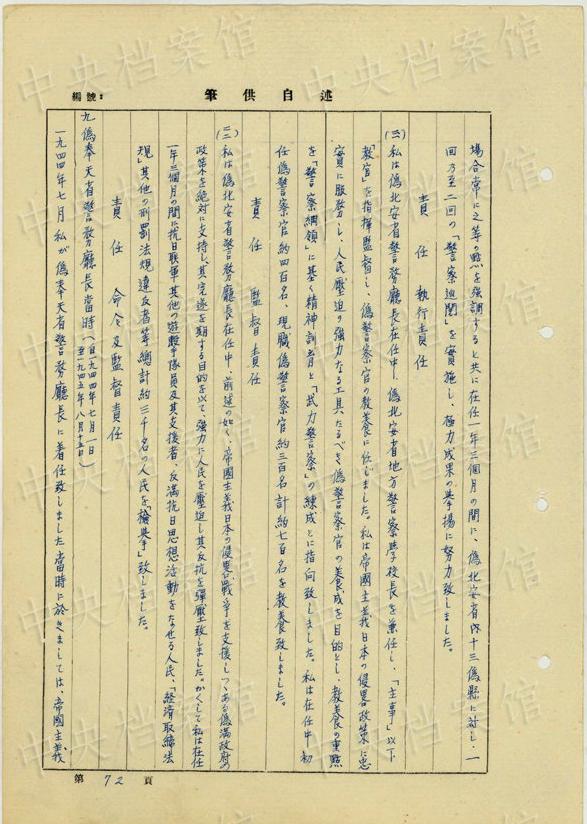 編號：
筆供自述
場合常に之等の点を強調すると共に在任一年三個月の間に、偽北安省内十三偽縣に対し、一
回乃至二回の「警察巡閲」を實施し、極力成果の挙揚に努力致しました。
責任 執行責任
(三) 私は偽北安省警務廳長在任中、偽北安省地方警察學校長を兼任し、「主事」以下
「教官」を指揮監督し、偽警察官の教養に任じました。私は帝國主義日本の侵畧政策に忠
實に服務し、人民壓迫の強力なる工具たるべき偽警察官の養成を目的とし、教養の重點
を「警察綱領」に基く精神訓育と「武力警察」の練成とに指向致しました。私は在任中、初
任偽警察官約四百名、現職偽警察官約三百名、計約七百名を教養致しました。
責任 監督責任
私は偽北安省警務廳長在任中、前述の如く、帝國主義日本の侵畧戰爭を支援しつゝある偽満政府の
政策を絶対に支持し、其完遂を期する目的を以て、強力に人民を壓迫し其反抗を弾壓致しました。かくして私は在任
一年三個月の間に抗日聯軍其他の遊撃隊員及其支援者、反満抗日思想活動をなせる人民、「経済取締法
規」其他の刑罰法規違反者等総計約三千名の人民を「檢挙」致しました。
責任 命令及監督責任
九 偽奉天省警務廳長當時（自一九四四年七月一日
至一九四五年八月十五日）
一九四四年七月私が偽奉天省警務廳長に着任致しました當時に於きましては、帝國主義
第 72 頁
中央档案馆